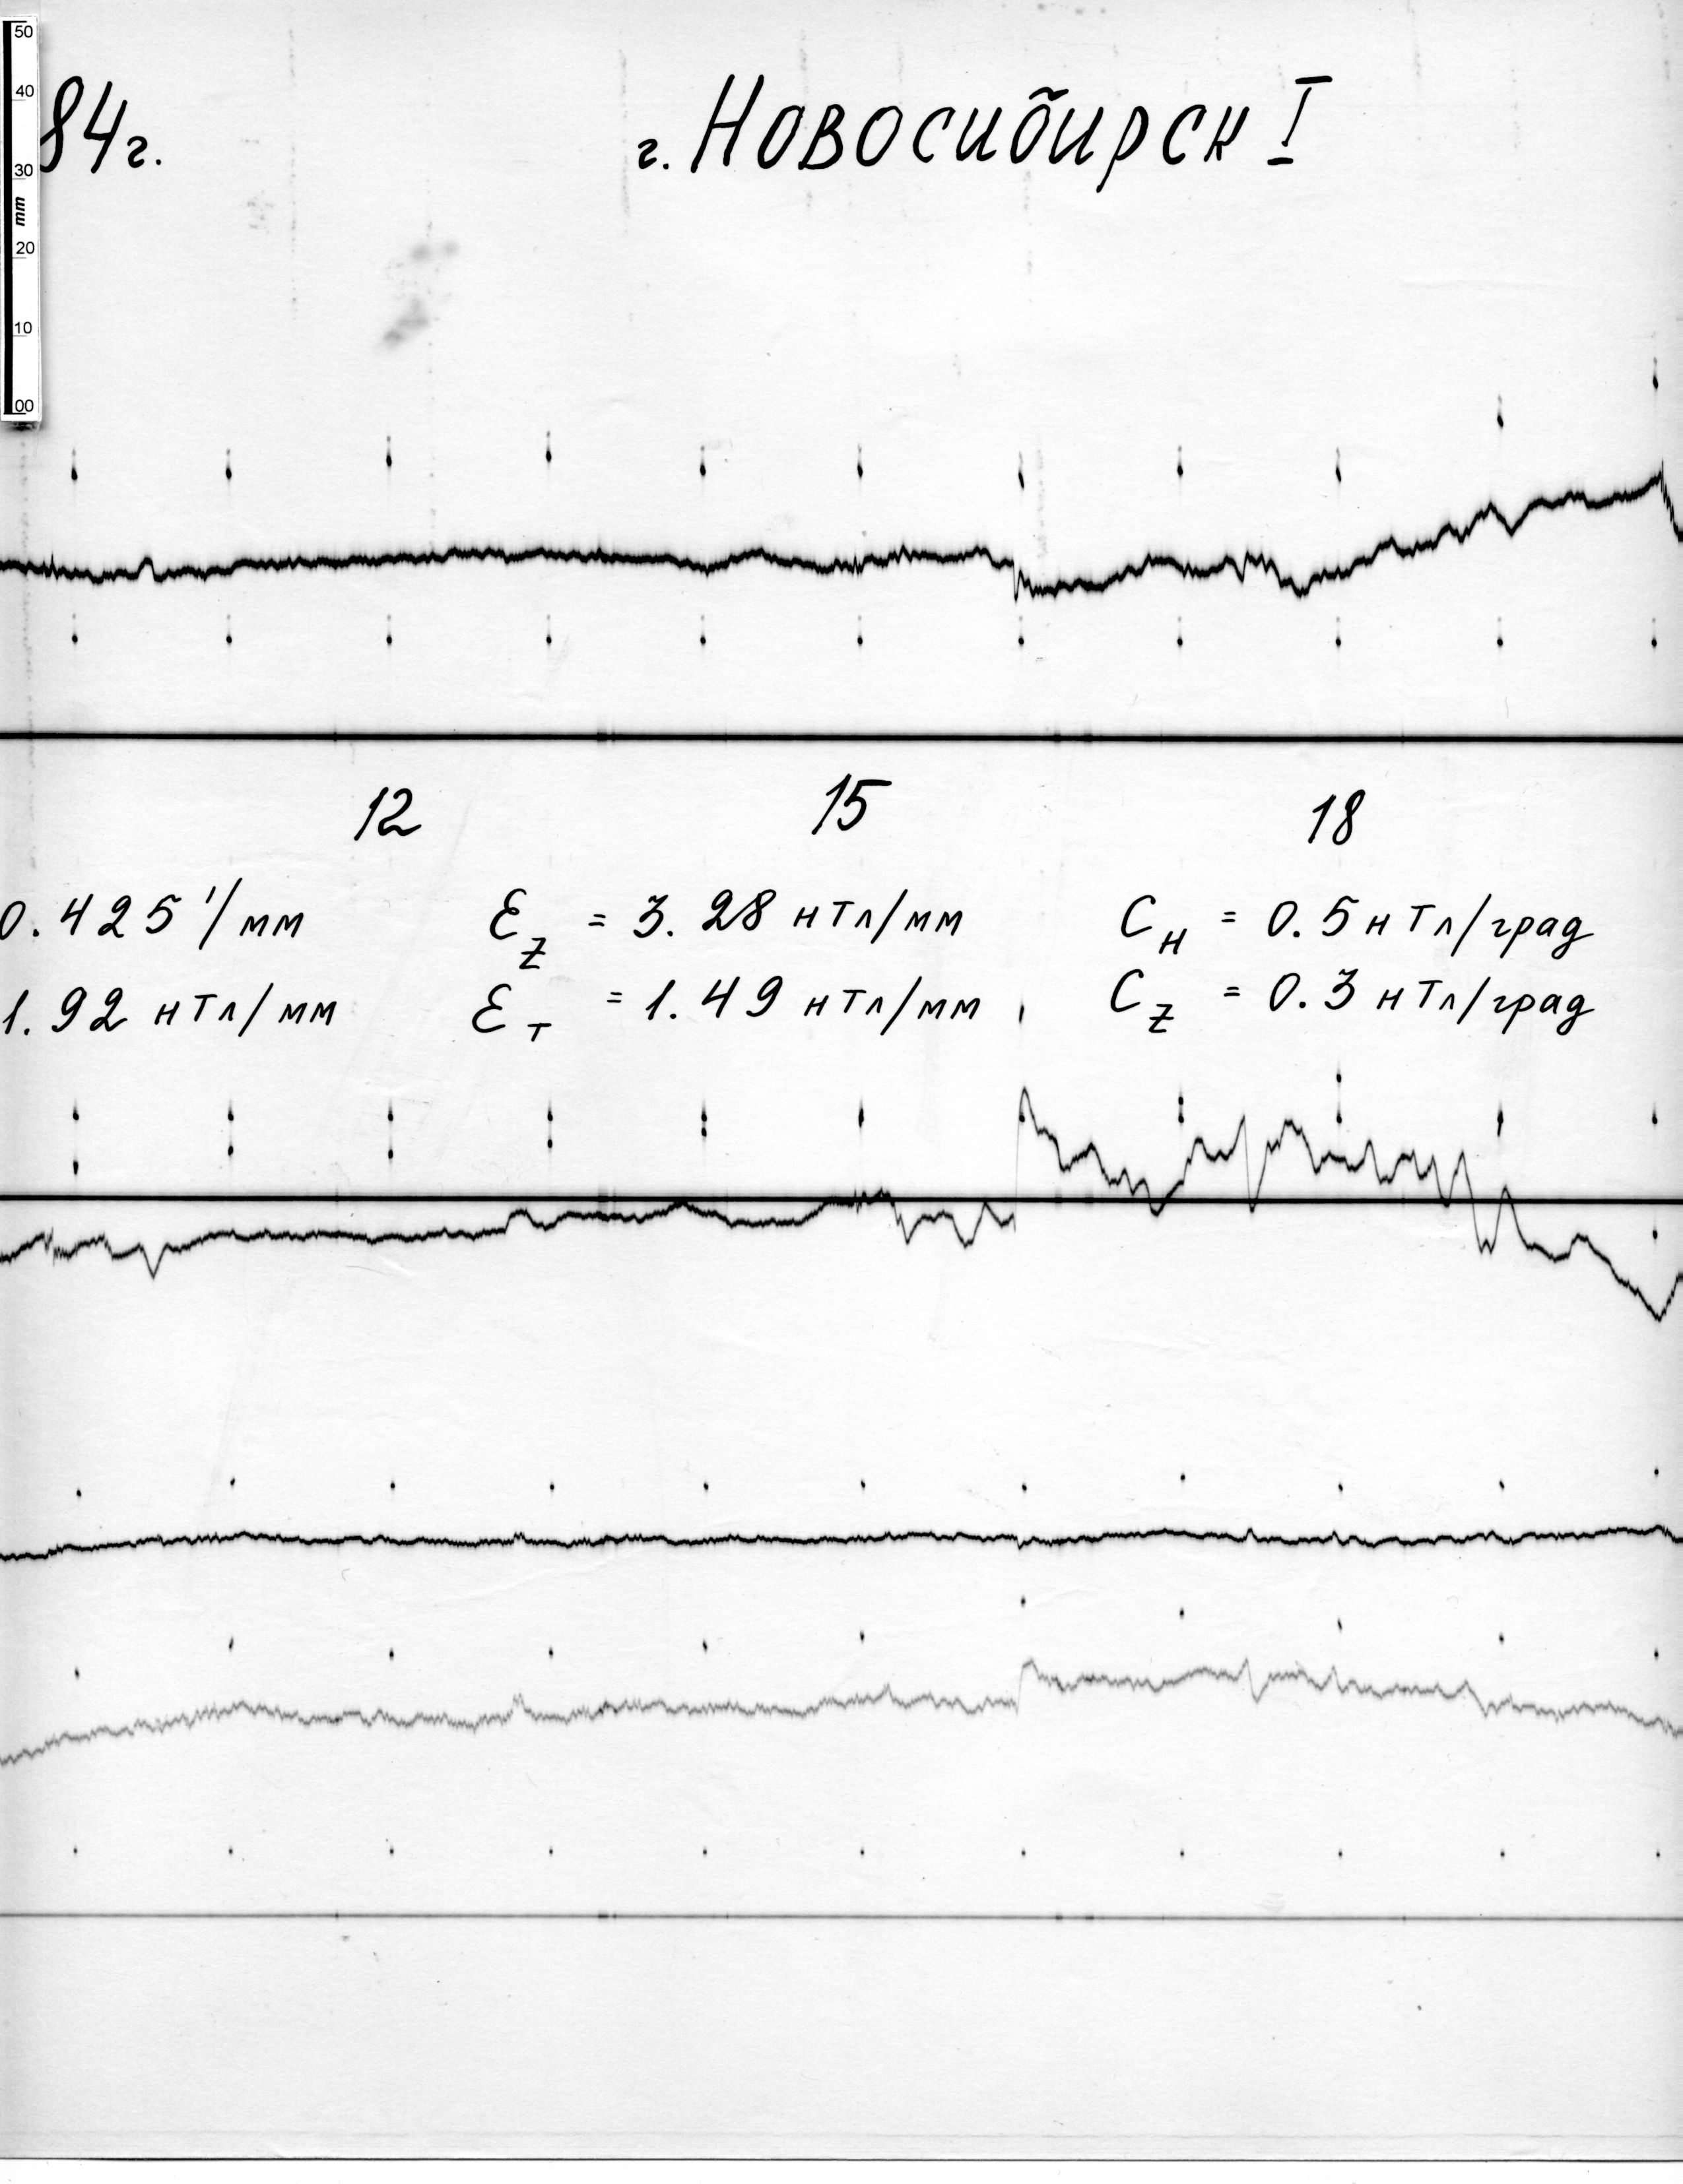 50
40
30
mm
20
10
00
84г.
г. Новосибирск I
12 15 18
0.425'/мм Ɛ_Z = 3.28 нТл/мм C_H = 0.5 нТл/град
1.92 нТл/мм Ɛ_T = 1.49 нТл/мм C_Z = 0.3 нТл/град